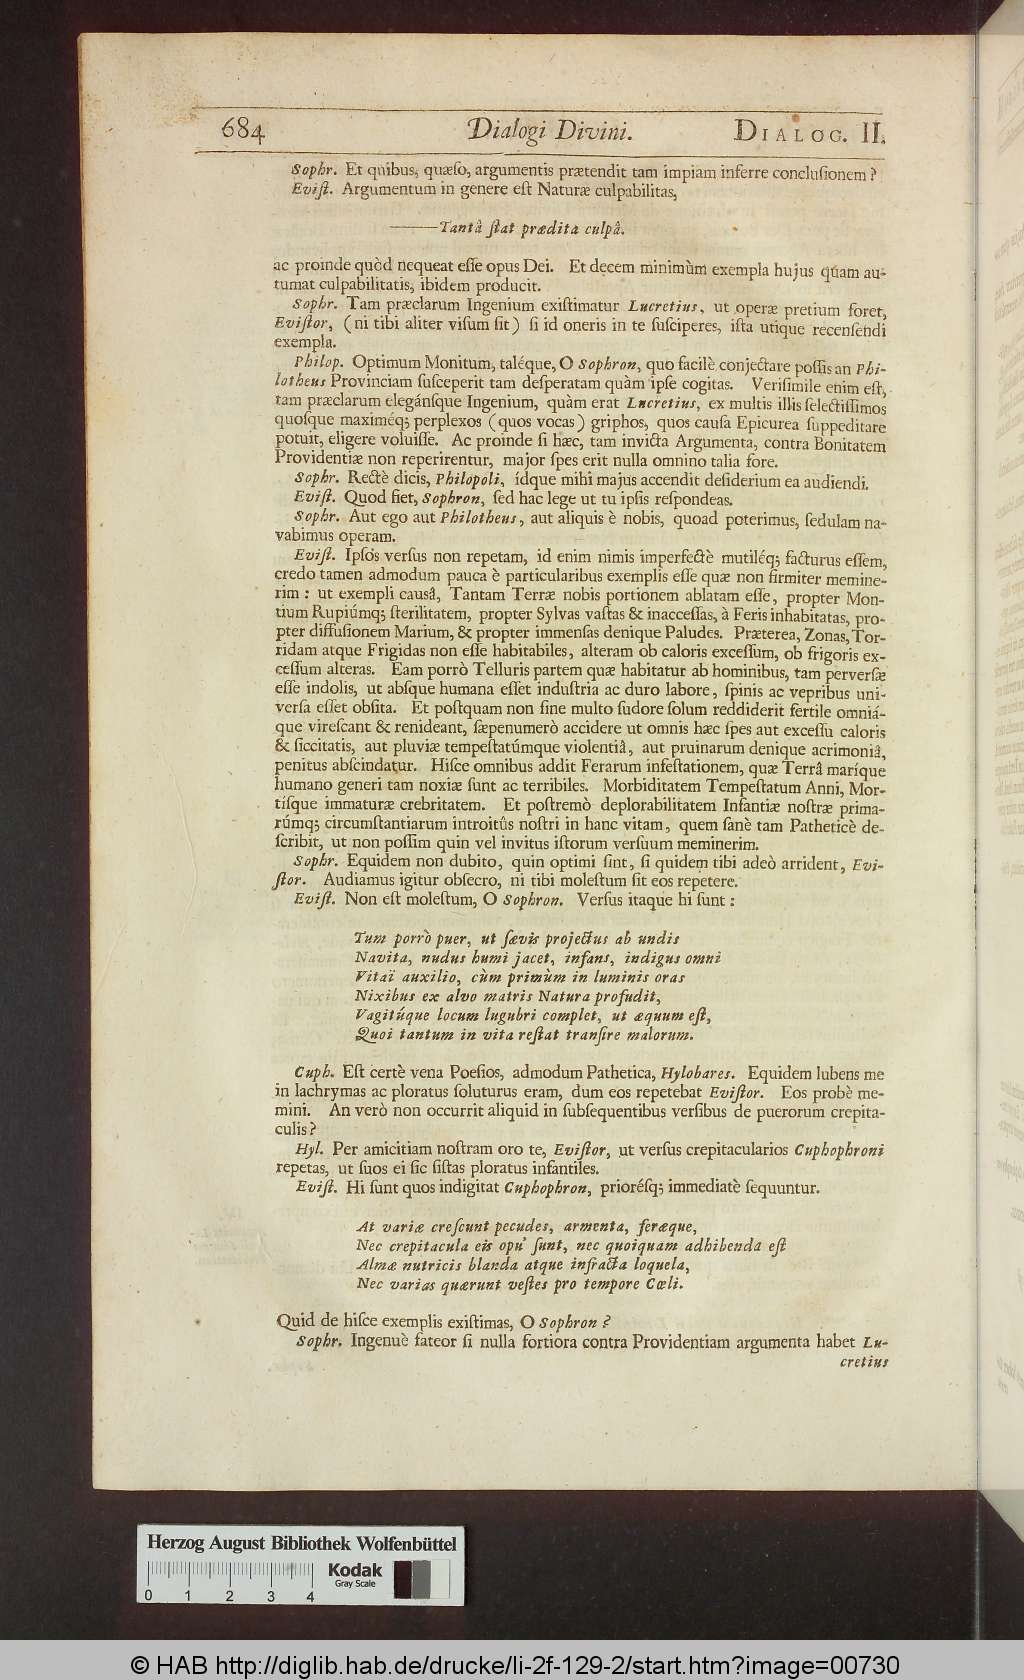 684 Dialogi Divini. DIALOG. II.
Sophr. Et quibus, quæſo, argumentis prætendit tam impiam inferre concluſionem?
Eviſt. Argumentum in genere eſt Naturæ culpabilitas,
——Tantâ ſtat prædita culpâ.
ac proinde quòd nequeat eſſe opus Dei. Et decem minimùm exempla hujus quam au-
tumat culpabilitatis, ibidem producit.
Sophr. Tam præclarum Ingenium exiſtimatur Lucretius, ut operæ pretium foret,
Eviſtor, (ni tibi aliter viſum ſit) ſi id oneris in te ſuſciperes, iſta utique recenſendi
exempla.
Philop. Optimum Monitum, taléque, O Sophron, quo facilè conjectare poſſis an Phi-
lotheus Provinciam ſuſceperit tam deſperatam quàm ipſe cogitas. Veriſimile enim eſt,
tam præclarum elegánſque Ingenium, quàm erat Lucretius, ex multis illis ſelectiſſimos
quoſque maximéq; perplexos (quos vocas) griphos, quos cauſa Epicurea ſuppeditare
potuit, eligere voluiſſe. Ac proinde ſi hæc, tam invicta Argumenta, contra Bonitatem
Providentiæ non reperirentur, major ſpes erit nulla omnino talia fore.
Sophr. Rectè dicis, Philopoli, ídque mihi majus accendit deſiderium ea audiendi.
Eviſt. Quod fiet, Sophron, ſed hac lege ut tu ipſis reſpondeas.
Sophr. Aut ego aut Philotheus, aut aliquis è nobis, quoad poterimus, ſedulam na-
vabimus operam.
Eviſt. Ipſos verſus non repetam, id enim nimis imperfectè mutiléq; facturus eſſem,
credo tamen admodum pauca è particularibus exemplis eſſe quæ non firmiter memine-
rim: ut exempli causâ, Tantam Terræ nobis portionem ablatam eſſe, propter Mon-
tium Rupiúmq; ſterilitatem, propter Sylvas vaſtas & inacceſſas, à Feris inhabitatas, pro-
pter diffuſionem Marium, & propter immenſas denique Paludes. Præterea, Zonas, Tor-
ridam atque Frigidas non eſſe habitabiles, alteram ob caloris exceſſum, ob frigoris ex-
ceſſum alteras. Eam porrò Telluris partem quæ habitatur ab hominibus, tam perverſæ
eſſe indolis, ut abſque humana eſſet induſtria ac duro labore, ſpinis ac vepribus uni-
verſa eſſet obſita. Et poſtquam non ſine multo ſudore ſolum reddiderit fertile omniá-
que vireſcant & renideant, ſæpenumerò accidere ut omnis hæc ſpes aut exceſſu caloris
& ſiccitatis, aut pluviæ tempeſtatúmque violentiâ, aut pruinarum denique acrimoniâ,
penitus abſcindatur. Hiſce omnibus addit Ferarum infeſtationem, quæ Terrâ maríque
humano generi tam noxiæ ſunt ac terribiles. Morbiditatem Tempeſtatum Anni, Mor-
tiſque immaturæ crebritatem. Et poſtremò deplorabilitatem Infantiæ noſtræ prima-
rúmq; circumſtantiarum introitûs noſtri in hanc vitam, quem ſanè tam Patheticè de-
ſcribit, ut non poſſim quin vel invitus iſtorum verſuum meminerim.
Sophr. Equidem non dubito, quin optimi ſint, ſi quidem tibi adeò arrident, Evi-
ſtor. Audiamus igitur obſecro, ni tibi moleſtum ſit eos repetere.
Eviſt. Non eſt moleſtum, O Sophron. Verſus itaque hi ſunt:
Tum porrò puer, ut ſævis projectus ab undis
Navita, nudus humi jacet, infans, indigus omni
Vitaï auxilio, cùm primùm in luminis oras
Nixibus ex alvo matris Natura profudit,
Vagitúque locum lugubri complet, ut æquum eſt,
Quoi tantum in vita reſtat tranſire malorum.
Cuph. Eſt certè vena Poeſios, admodum Pathetica, Hylobares. Equidem lubens me
in lachrymas ac ploratus ſoluturus eram, dum eos repetebat Eviſtor. Eos probè me-
mini. An verò non occurrit aliquid in ſubſequentibus verſibus de puerorum crepita-
culis?
Hyl. Per amicitiam noſtram oro te, Eviſtor, ut verſus crepitacularios Cuphophroni
repetas, ut ſuos ei ſic ſiſtas ploratus infantiles.
Eviſt. Hi ſunt quos indigitat Cuphophron, prioréſq; immediatè ſequuntur.
At variæ creſcunt pecudes, armenta, feræque,
Nec crepitacula eis opu' ſunt, nec quoiquam adhibenda eſt
Almæ nutricis blanda atque infracta loquela,
Nec varias quærunt veſtes pro tempore Cœli.
Quid de hiſce exemplis exiſtimas, O Sophron?
Sophr. Ingenuè fateor ſi nulla fortiora contra Providentiam argumenta habet Lu-
cretius
Herzog August Bibliothek Wolfenbüttel
0 1 2 3 4
Kodak
Gray Scale
© HAB http://diglib.hab.de/drucke/li-2f-129-2/start.htm?image=00730